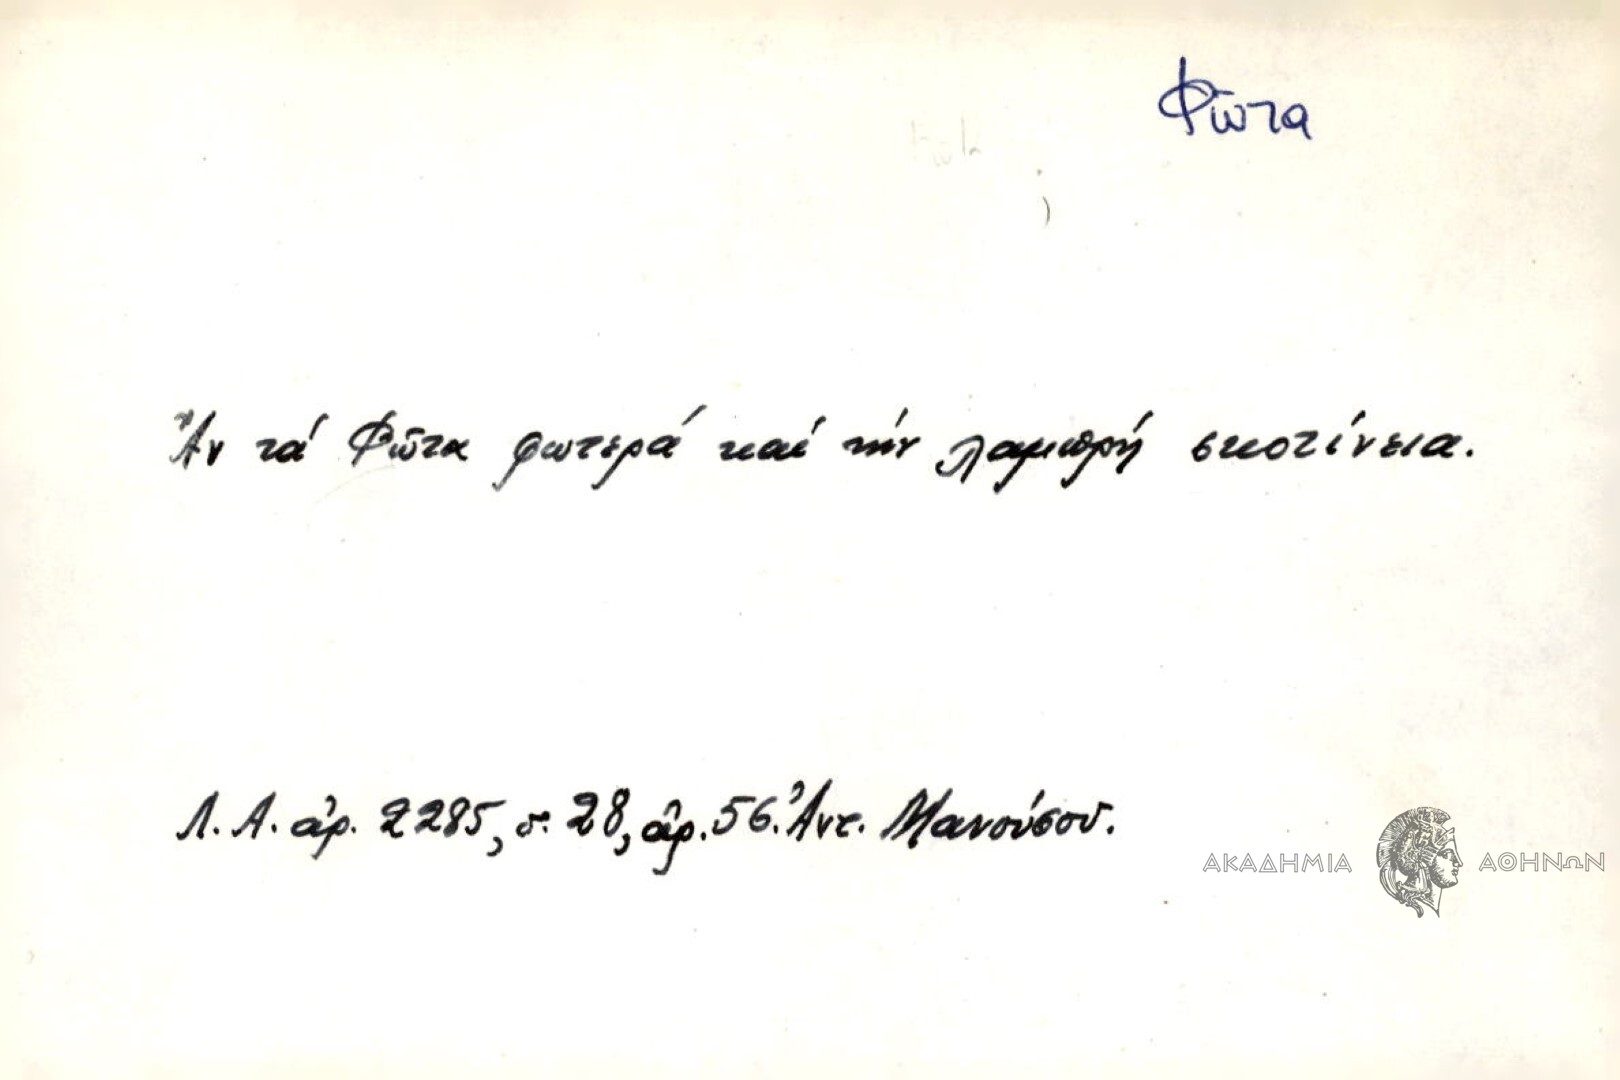 Φῶτα
Ἄν τά Φῶτα φωτερά καί τήν λαμπρή σκοτίνεια.
Λ. Α. ἀρ. 2285, σ. 28, ἀρ. 56. Ἀντ. Μανούσου.
ΑΚΑΔΗΜΙΑ ΑΘΗΝΩΝ